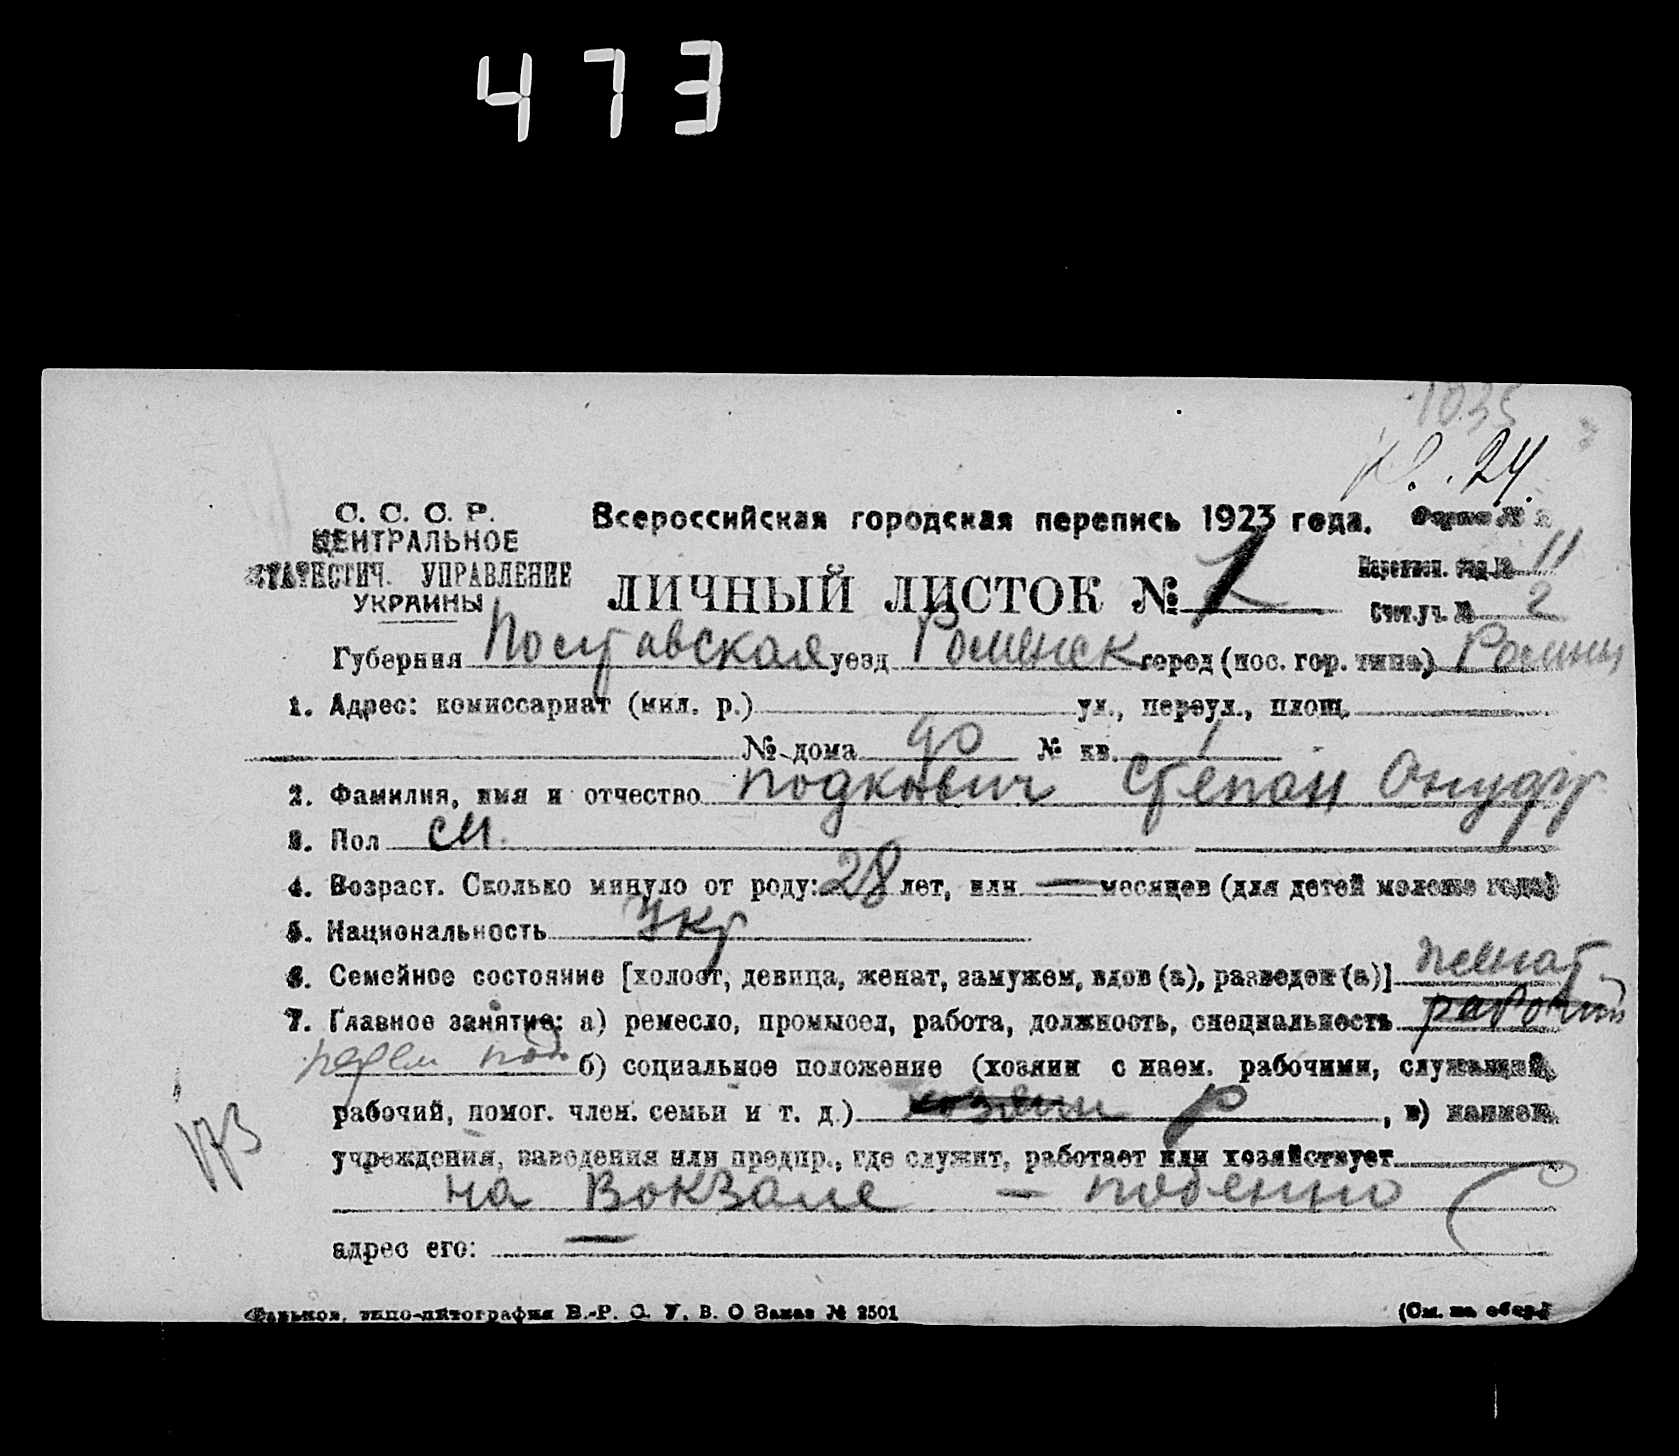 473
1035
24.
С. С. С. Р.
ЦЕНТРАЛЬНОЕ
СТАТИСТИЧ. УПРАВЛЕНИЕ
УКРАИНЫ
Всероссийская городская перепись 1923 года. Форма №
ЛИЧНЫЙ ЛИСТОК № 1
Переписн. отд. № 11
Счет. уч. № 2
Губерния Полтавская уезд Роменск город (пос. гор. типа) Ромны
1. Адрес: комиссариат (мил. р.) ул., переул., площ.
№ дома 90 № кв. 1
2. Фамилия, имя и отчество Степан Онуфр
3. Пол М.
4. Возраст. Сколько минуло от роду: 28 лет, или — месяцев (для детей моложе года)
5. Национальность Укр
6. Семейное состояние [холост, девица, женат, замужем, вдов (а), разведен (а)] женат
7. Главное занятие: а) ремесло, промысел, работа, должность, специальность рабочий
б) социальное положение (хозяин с наем. рабочими, служащий,
рабочий, помог. член. семьи и т. д.) хозяин Р, в) наимен.
учреждения, заведения или предпр., где служит, работает или хозяйствует
на Вокзале — поденно
адрес его: —
173
Харьков, типо-литография В.-Р. С. У. В. О Заказ № 2501 (См. на обор.)